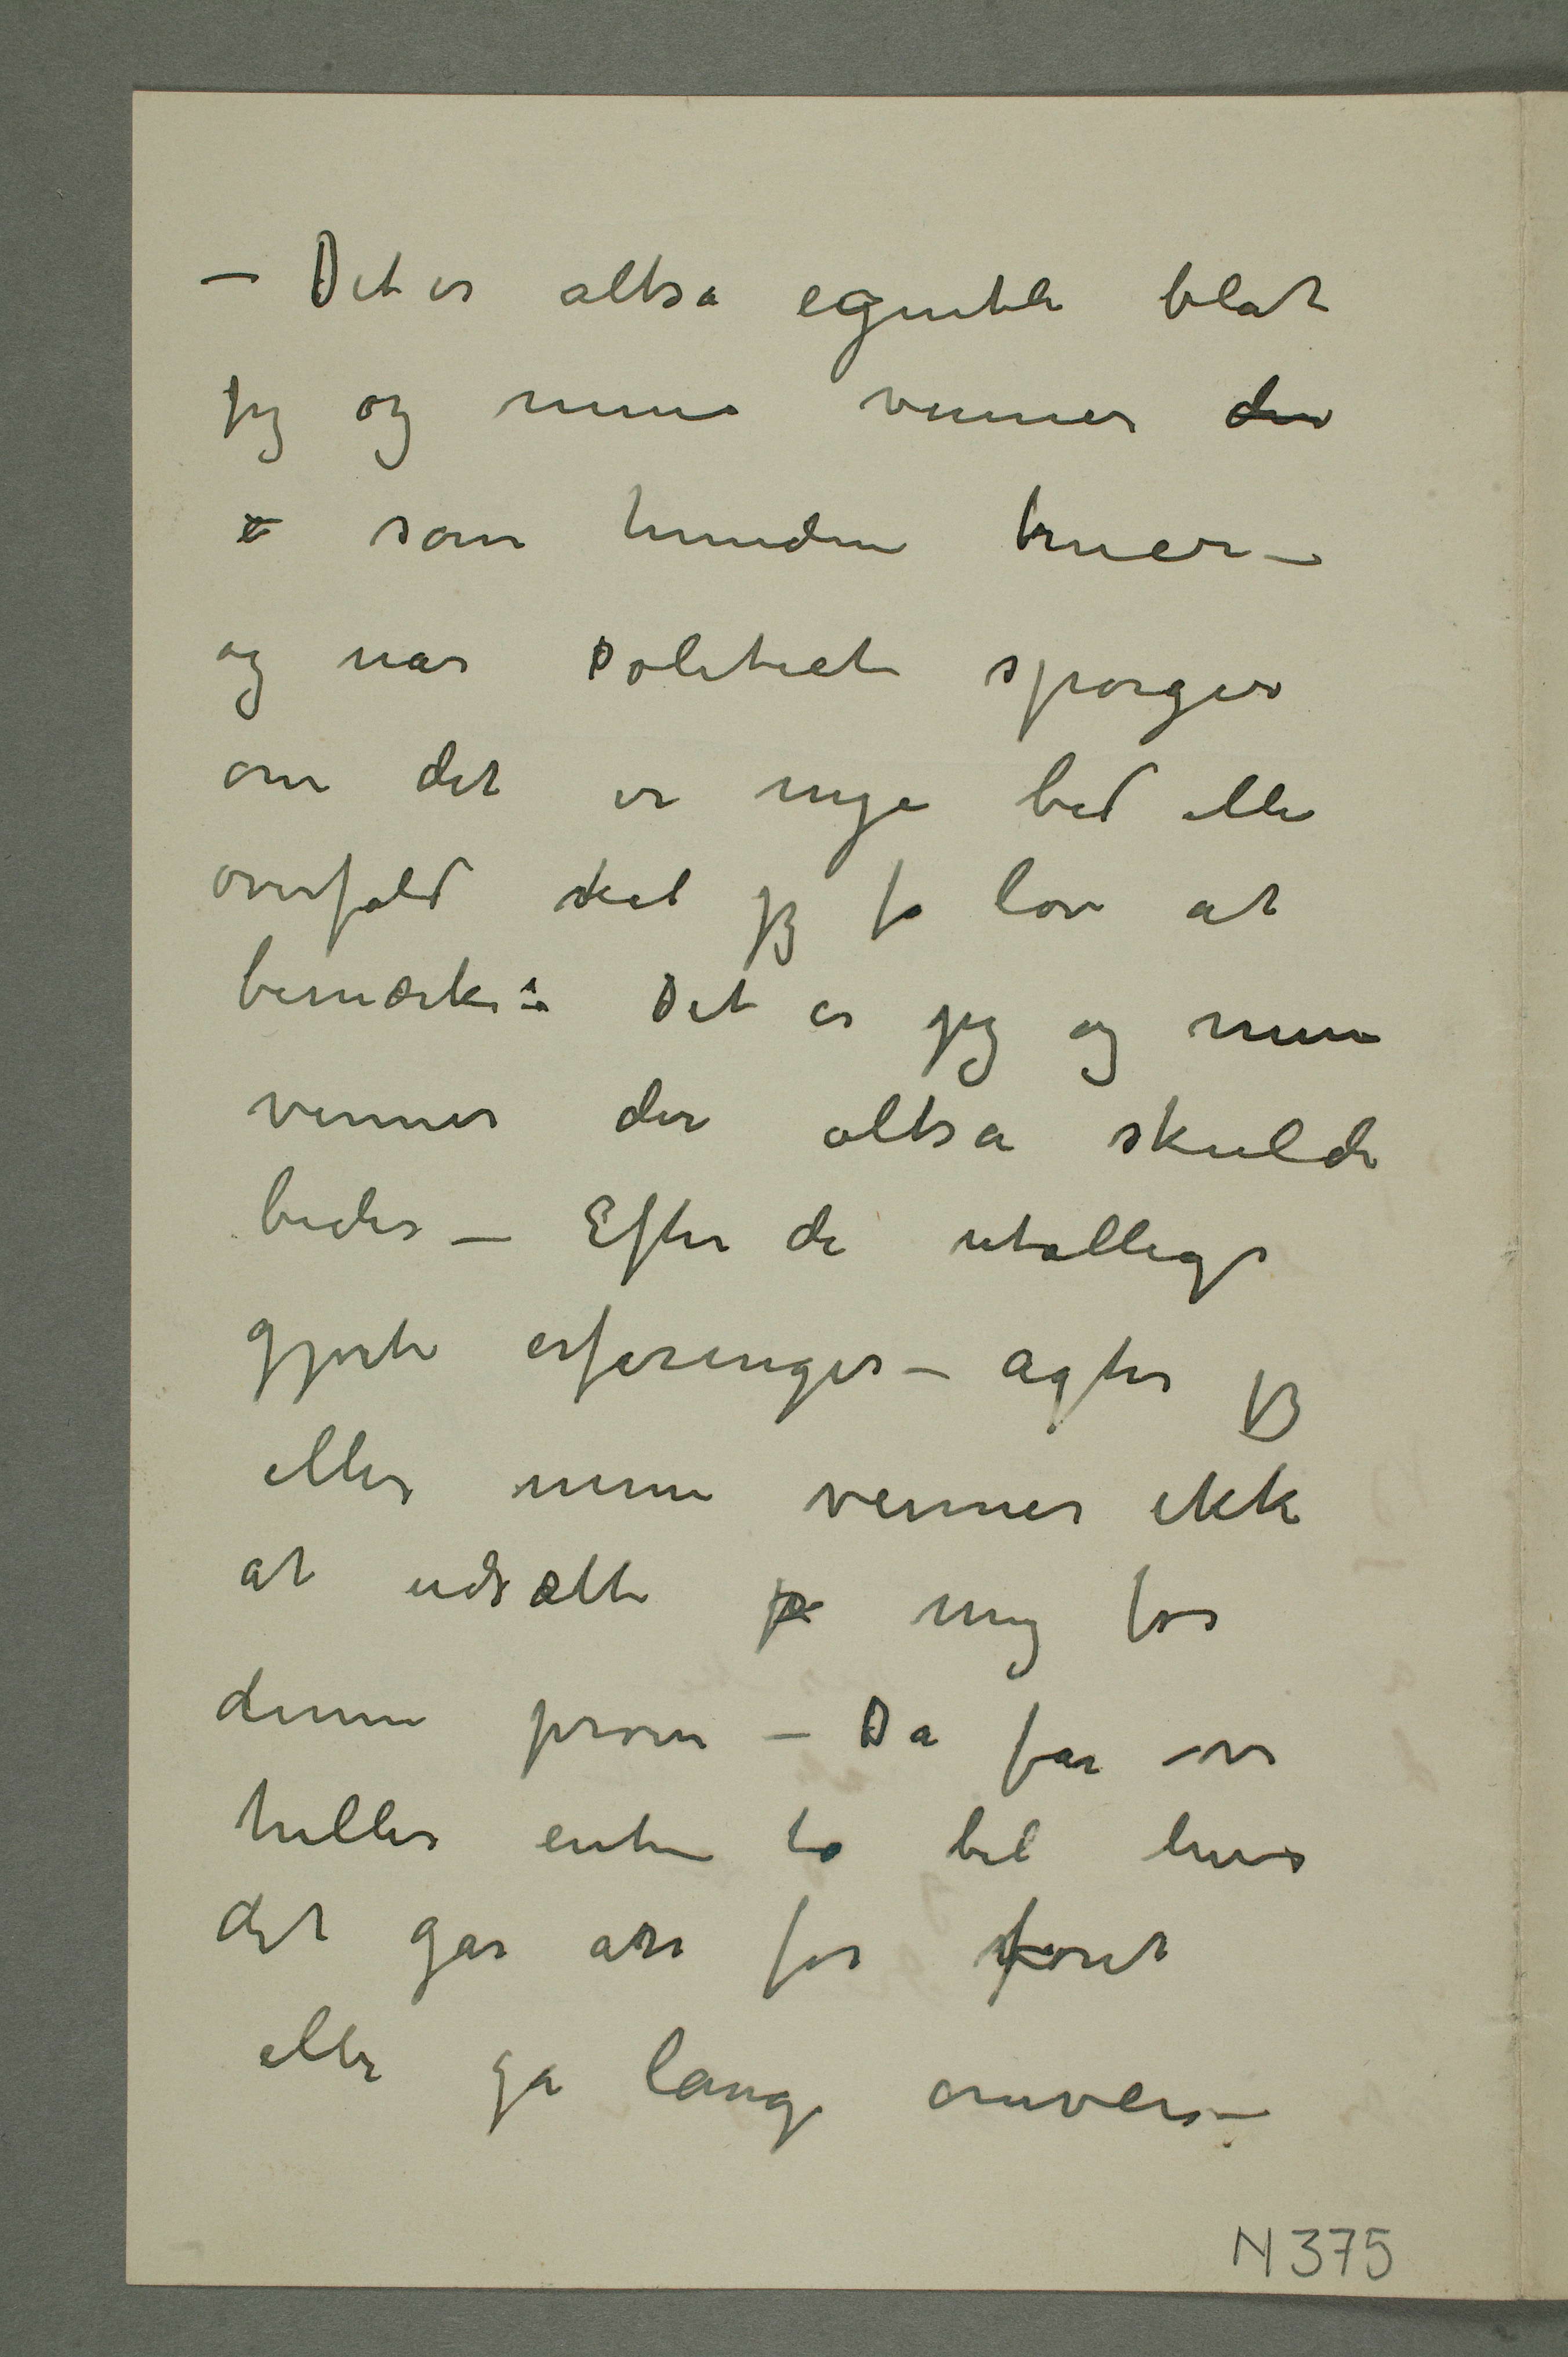 – Det er altsa egentli blåt
jeg og mine venner der
e som hunden truer –
og når Politiet sporger
om det er nye bid eller
overfald skal jeg få lov at
bemærke: Det er jeg og mine
venner der altså skulde
bides – Efter de utallige
gjorte erfaringer – agter jeg
eller mine venner ikke
at udsætte på mig for
denne prove – Da får vi
heller enten ta bil hvis
det går an for foret
eller gå lange omveie –
N 375